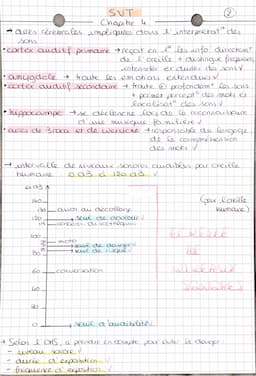 SVT
②
Chapitre 4
→ aires cérébrales impliquées dans l'interprétat° des
sons
• cortex auditif primaire → reçoit en 1er les info directem^t
de l'oreille + distingue fréquence,
intensité et durée des sons √
• amygdale → traite les émotions
• cortex auditif secondaire → traite + profondém^t les sons
+ permet percept° des mots et
localisat° des sons √
• hippocampe → se déclenche lors de la reconnaissance
d'une musique familière √
• aires de Broca et de Wernicke → responsable du langage
de la compréhension
des mots √
→ intervalle de niveaux sonores audibles par oreille
humaine 0 dB à 120 dB √
dB
140
avion au décollage
(par l'oreille
humaine)
120
seuil de douleur √
100
moto
seuil de danger √
seuil de risque √
80
60
conversation
40
20
0
seuil d'audibilité √
→ Selon l'OMS, à prendre en compte pour éviter le danger :
- niveau sonore √
- durée d'exposition √
- fréquence d'exposition √